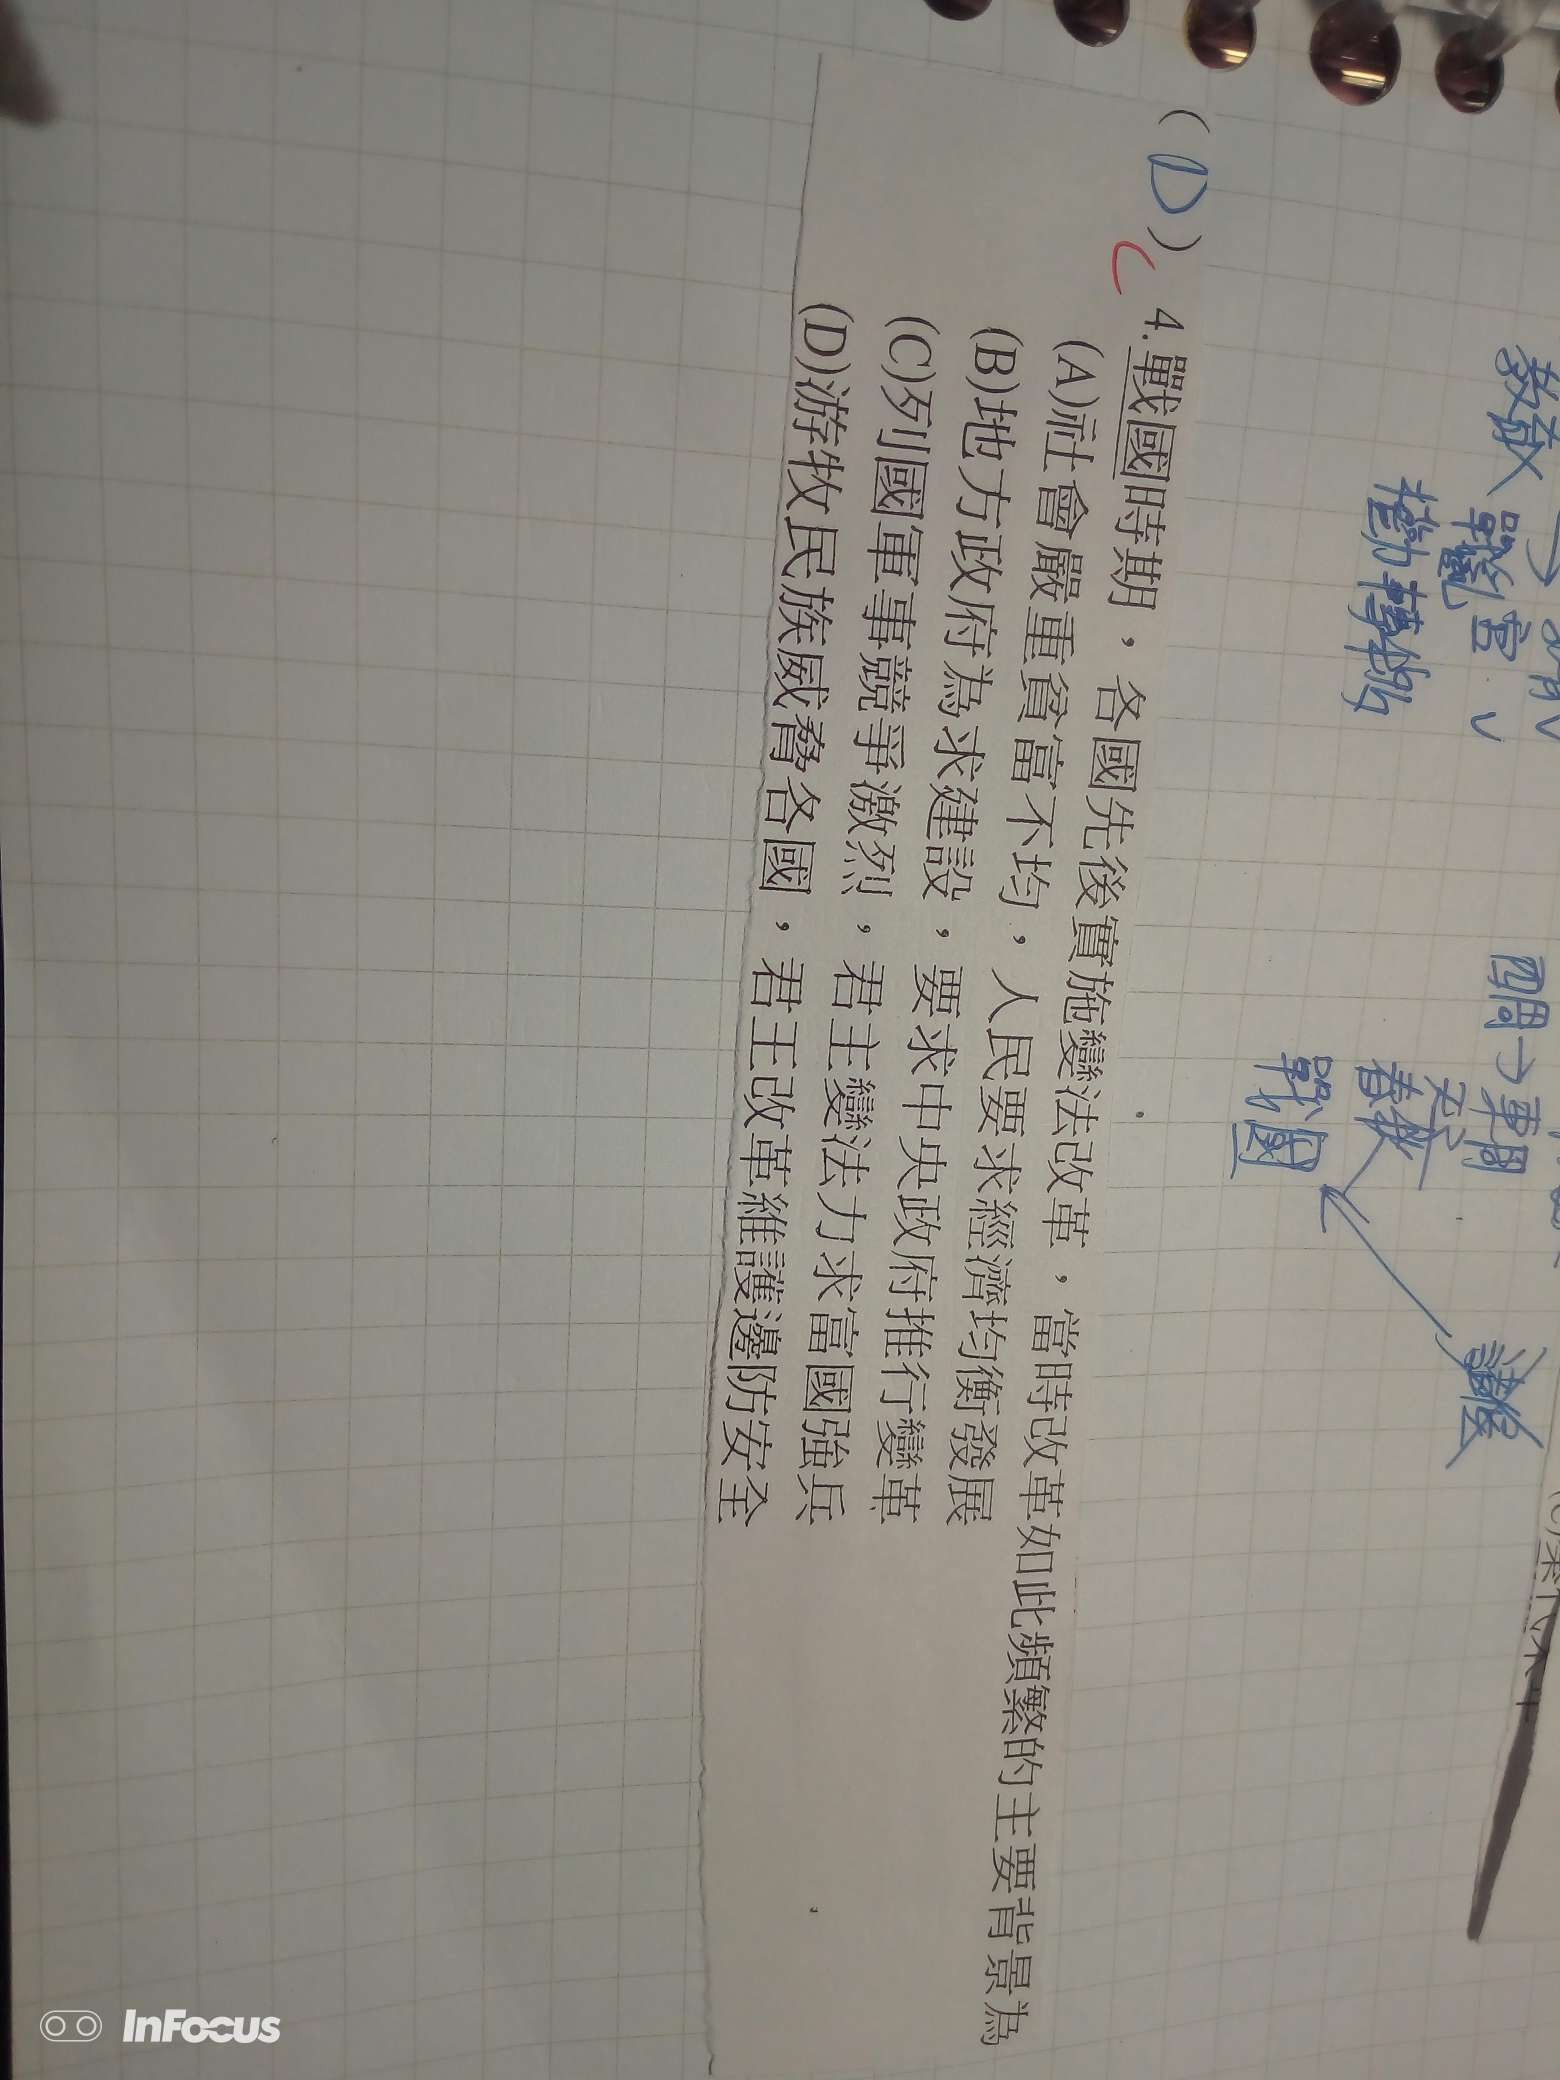 (D) C 4.戰國時期，各國先後實施變法改革，當時改革如此頻繁的主要背景為
(A)社會嚴重貧富不均，人民要求經濟均衡發展
(B)地方政府為求建設，要求中央政府推行變革
(C)列國軍事競爭激烈，君主變法力求富國強兵
(D)游牧民族威脅各國，君王改革維護邊防安全
春秋
戰國
InFocus